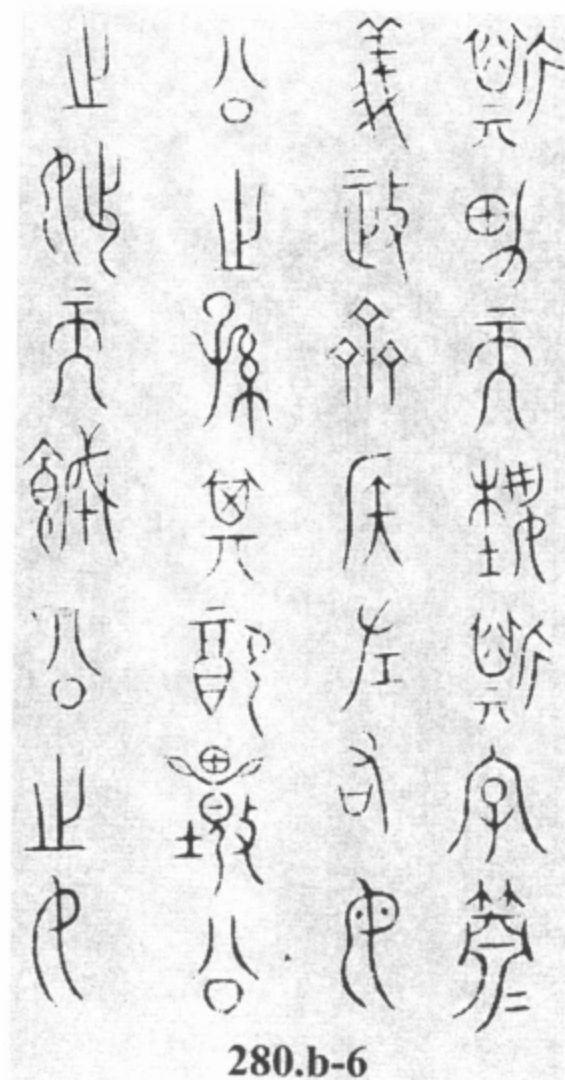 斯男而埶斯字
義政齊侯左右母
公之孫其配公
之而公之女
280.b-6